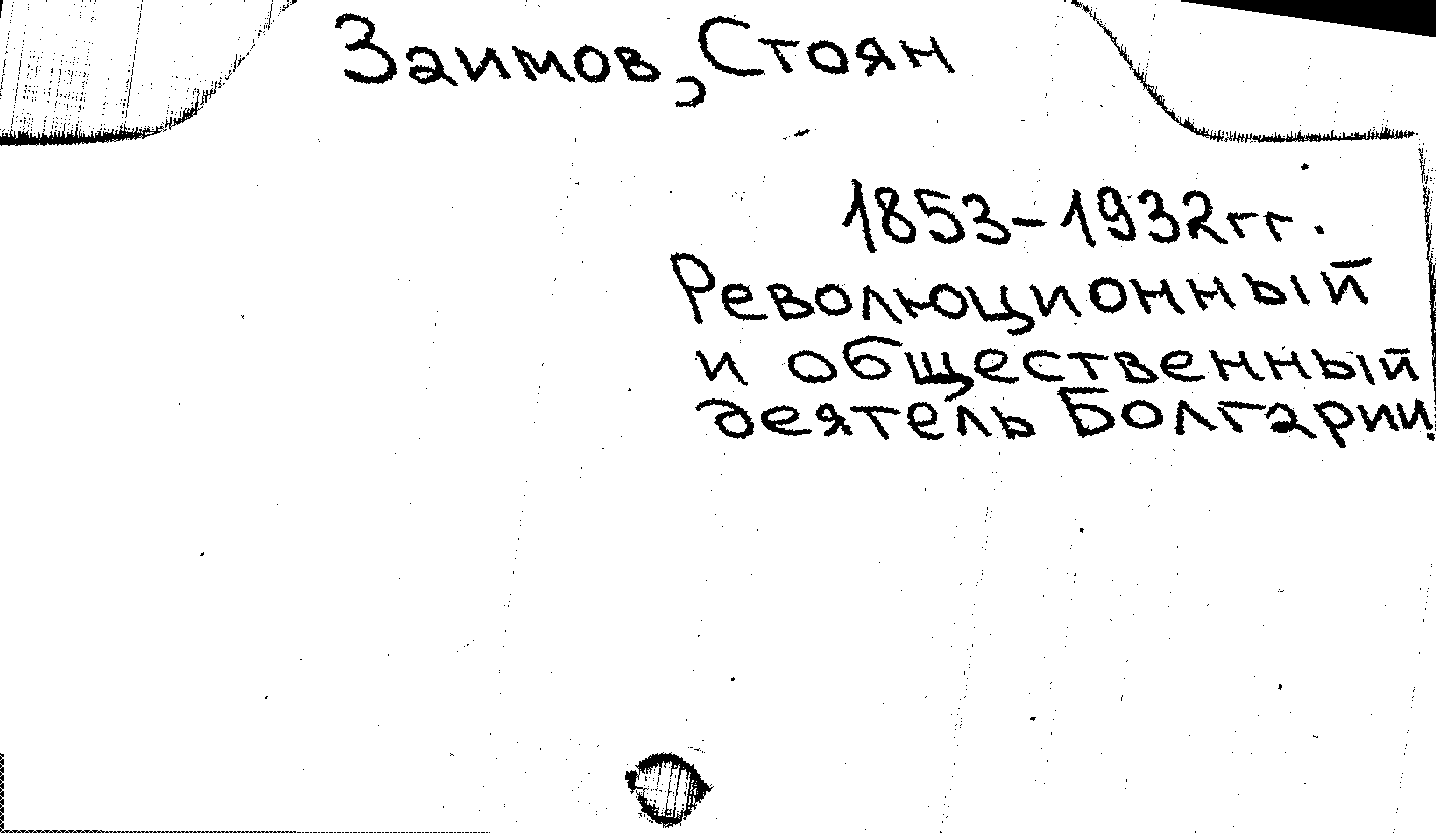 Заимов, Стоян
1853-1932гг.
Революционный
и общественный
деятель Болгарии.